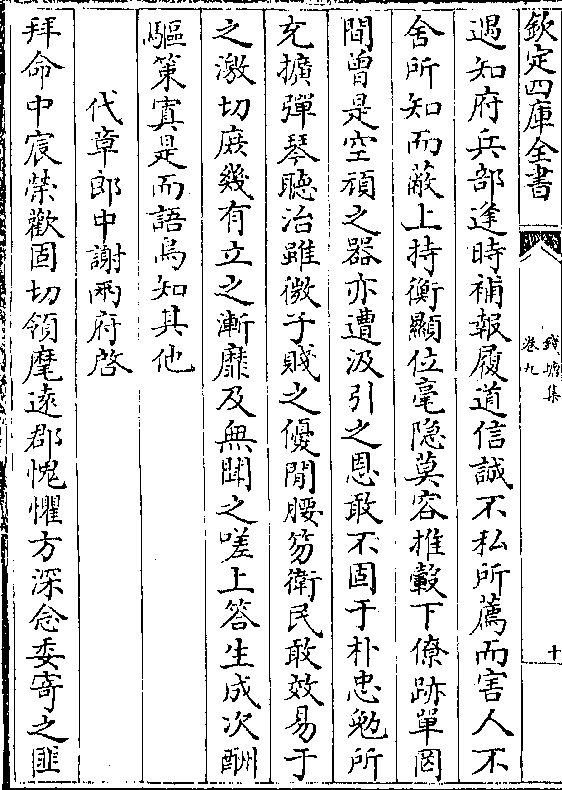 欽定四庫全書
錢塘集
卷九
十
遇知府兵部逢時補報履道信誠不私所薦而害人不
舍所知而蔽上持衡顯位毫隐莫容推轂下僚跡單罔
間曽是空頑之器亦遭汲引之恩敢不固于朴忠勉所
充擴彈琴聽治雖微子賤之優閒腰笏衛民敢效易于
之激切庶幾有立之漸靡及無聞之嗟上答生成次酬
驅策寘是而語焉知其他
代章郎中謝兩府啓
拜命中宸榮歡固切領麾逺郡愧懼方深念委寄之匪